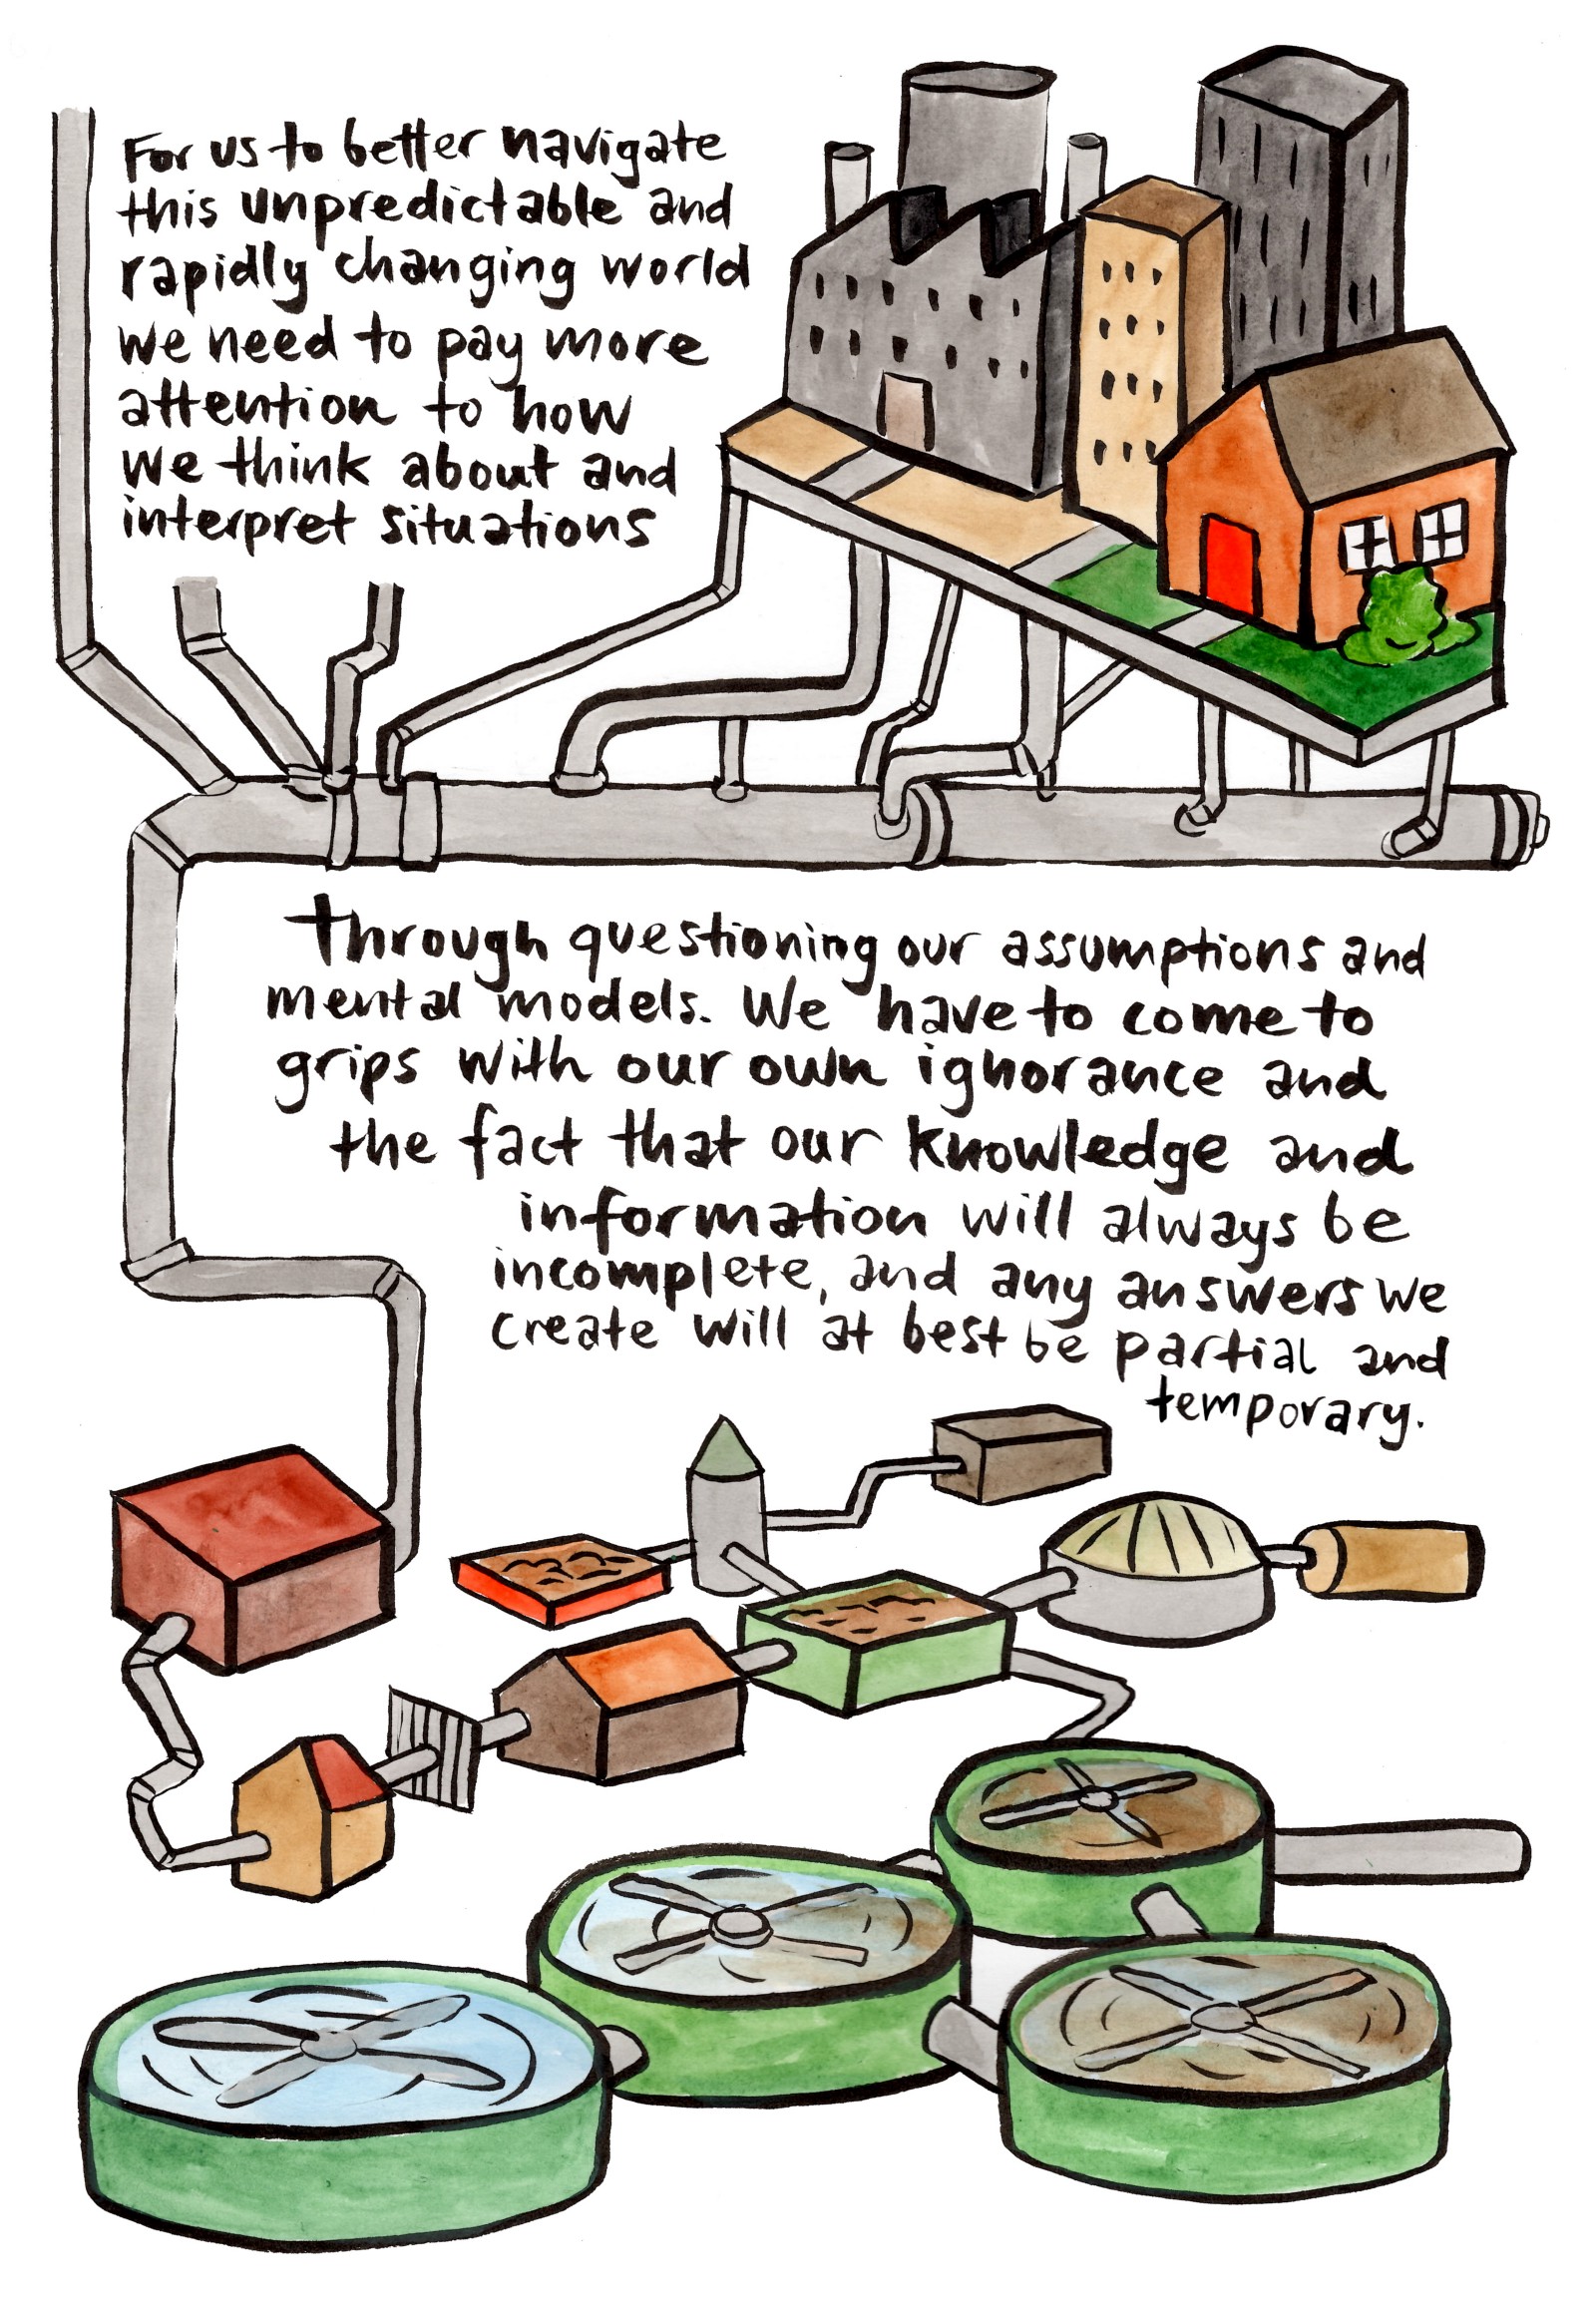 For us to better navigate
this unpredictable and
rapidly changing world
we need to pay more
attention to how
we think about and
interpret situations
Through questioning our assumptions and
mental models. We have to come to
grips with our own ignorance and
the fact that our knowledge and
information will always be
incomplete, and any answers we
create will at best be partial and
temporary.